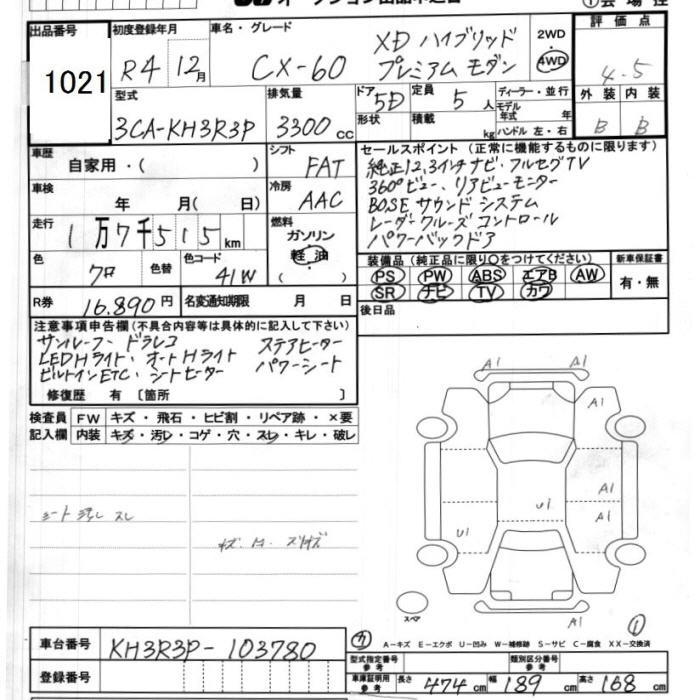 オークション出品申込書
①会場控
出品番号 初度登録年月 車名・グレード 2WD ・ 4WD 評価点
1021 R4 12月 CX-60 XD ハイブリッド プレミアム モダン 4.5
型式 排気量 ドア 定員 ディーラー・並行 外装 内装
3CA-KH3R3P 3300cc 5D 5人 モデル年式 年 B B
形状 積載 kg ハンドル 左・右
車歴 シフト セールスポイント (正常に機能するものに限ります)
自家用・( ) FAT 純正12.3インチナビ・フルセグTV
車検 冷房 360°ビュー、リアビューモニター
年 月( 日) AAC BOSE サウンド システム
走行 燃料 レーダークルーズ コントロール
1万7千515km ガソリン 軽油 ( ) パワーバックドア
色 色替 色コード 装備品 (純正品に限り○をつけてください) 新車保証書
クロ 41W PS PW ABS エアB AW 有・無
SR ナビ TV カワ
R券 16,890円 名変通知期限 月 日 後日品
注意事項申告欄(不具合内容等は具体的に記入して下さい)
サンルーフ・ドラレコ ステアヒーター
LEDHライト・オートHライト パワーシート
ビルトインETC・シートヒーター
修復歴 有 〔箇所 〕
検査員 FW キズ・飛石・ヒビ割・リペア跡・×要
記入欄 内装 キズ・汚レ・コゲ・穴・スレ・キレ・破レ
シート 汚レ スレ
A1 A1
A1
A1
A1
U1 U1
A1
スペア
①
A-キズ E-エクボ U-凹み W-補修跡 S-サビ C-腐食 XX-交換済
車台番号 KH3R3P-103780
登録番号
型式指定番号 参考 類別区分番号 参考
車庫証明用 参考 長さ 474cm 幅 189cm 高さ 168cm